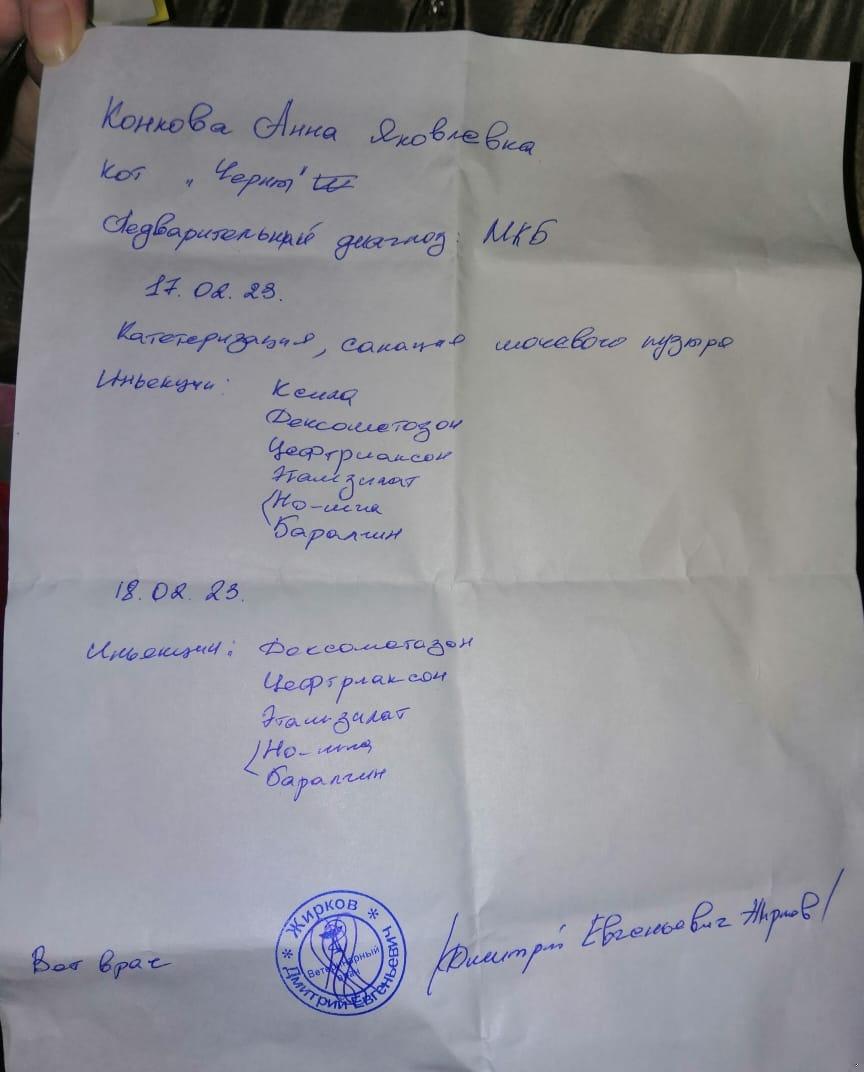 Конкова Анна Яковлевна
Кот „Черныш"
Предварительный диагноз: МКБ
17.02.23.
Катетеризация, санация мочевого пузыря
Инъекции: Ксила
Дексометозон
Цефтриаксон
Этамзилат
Но-шпа
Баралгин
18.02.23.
Инъекции: Дексометазон
Цефтриаксон
Этамзилат
Но-шпа
Баралгин
Вет врач
* Жирков *
Дмитрий Евгеньевич
Ветеринарный
врач
/Дмитрий Евгеньевич Жирков/